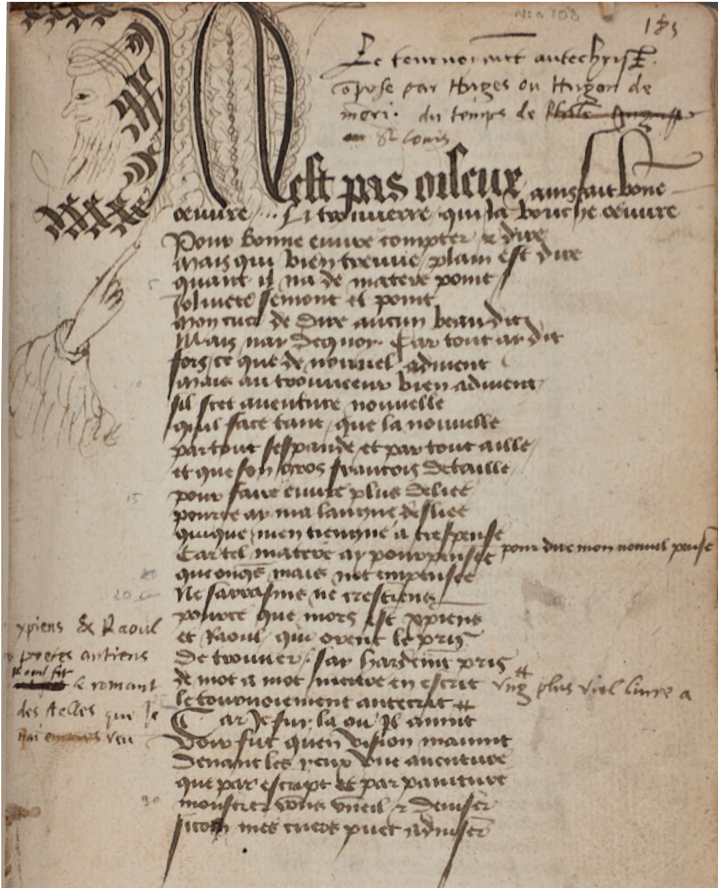 185
Le tournoiment antechrist.
opose par Huges ou Hugon de
meri. du temps de
St Louis
N'est pas oiseux ains fait bone
œuvre Li trouverre qui la bouche œuvre
Pour bonne euvre compter & dire
Mais qui bien treuve plain est dire
quant il na de matere point
Joliveté semont et point
mon cuer de dire aucun beau dit
Mais nay de quoy. Car tout a dit
fors ce que de nouvel advient
mais au trouveeur bien advient
sil scet aventure nouvelle
quil face tant que la nouvelle
par tout sespande et par tout aille
et que son gros francois detaille
pour faire euvre plus deliee
pource ay ma langue desliee
quique men tiengne a trespense
Car tel matere ay pourpensee pour dire mon nouvel pensé
que onqs mais not en pensee
Ne sarrasins ne crestiens
pource que mors est xpiens
et Raoul qui orent le pris
De trouver
de mot a mot en escrit
le tournoiement antecrit
Car Je fui la ou Il avint
Voir fut quen vision mavint
Devant les yeux une aventure
que par escript et par painture
monstrer vous vueil & deviser
sicom mes cuers puet adviser
xpiens & Raoul
poetes antiens
le romant
des Aelles que Je
nai encores veu
ung plus viel livre a
5
15
20
30